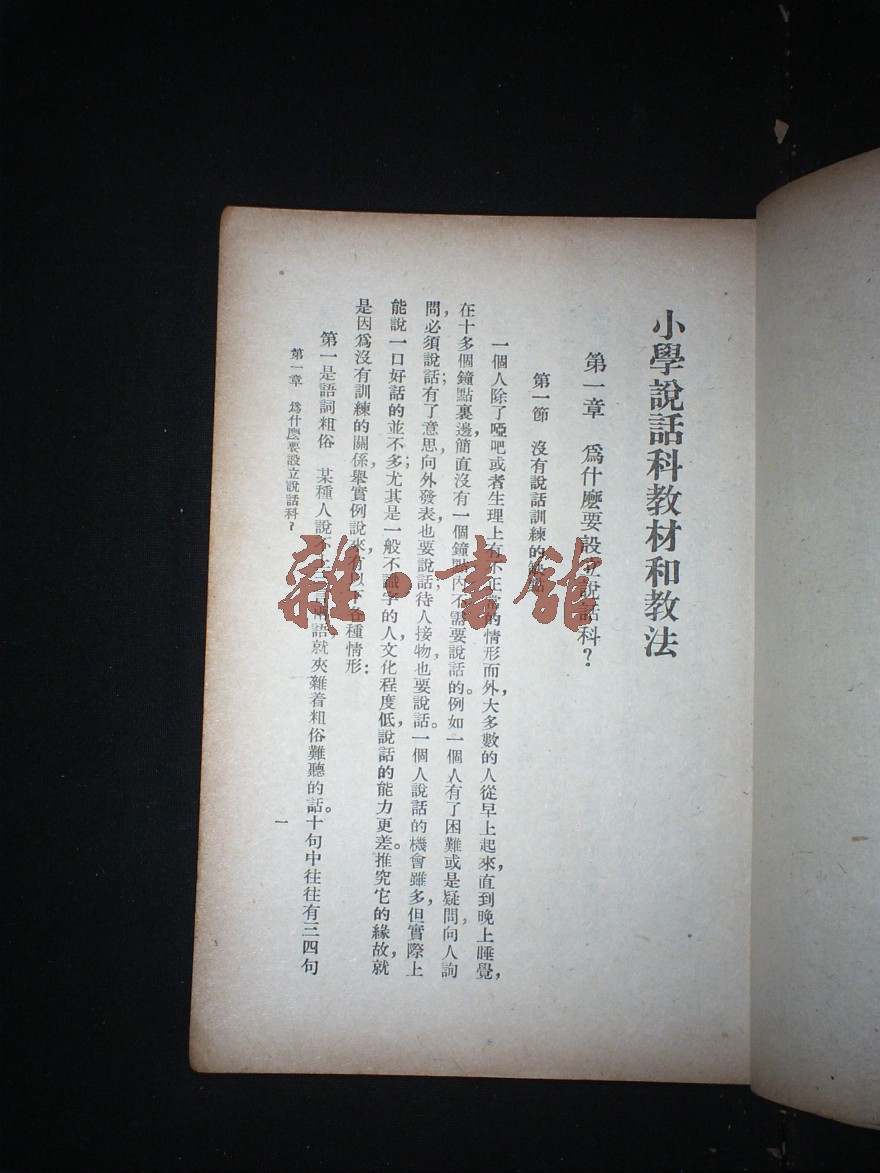 小學說話科教材和教法
第一章 爲什麽要設立說話科？
第一節 沒有說話訓練的缺點
一個人除了啞吧或者生理上有不正常的情形而外，大多數的人從早上起來，直到晚上睡覺，
在十多個鐘點裏邊，簡直沒有一個鐘點內不需要說話的。例如一個人有了困難或是疑問，向人詢
問必須說話；有了意思向外發表也要說話；待人接物，也要說話。一個人說話的機會雖多，但實際上
能說一口好話的並不多；尤其是一般不識字的人，文化程度低，說話的能力更差。推究它的緣故，就
是因爲沒有訓練的關係，舉實例說來，有以下各種情形：
第一是語詞粗俗 某種人說不上三言兩語就夾雜着粗俗難聽的話。十句中往往有三四句
第一章 爲什麽要設立說話科？
一
雜·書館